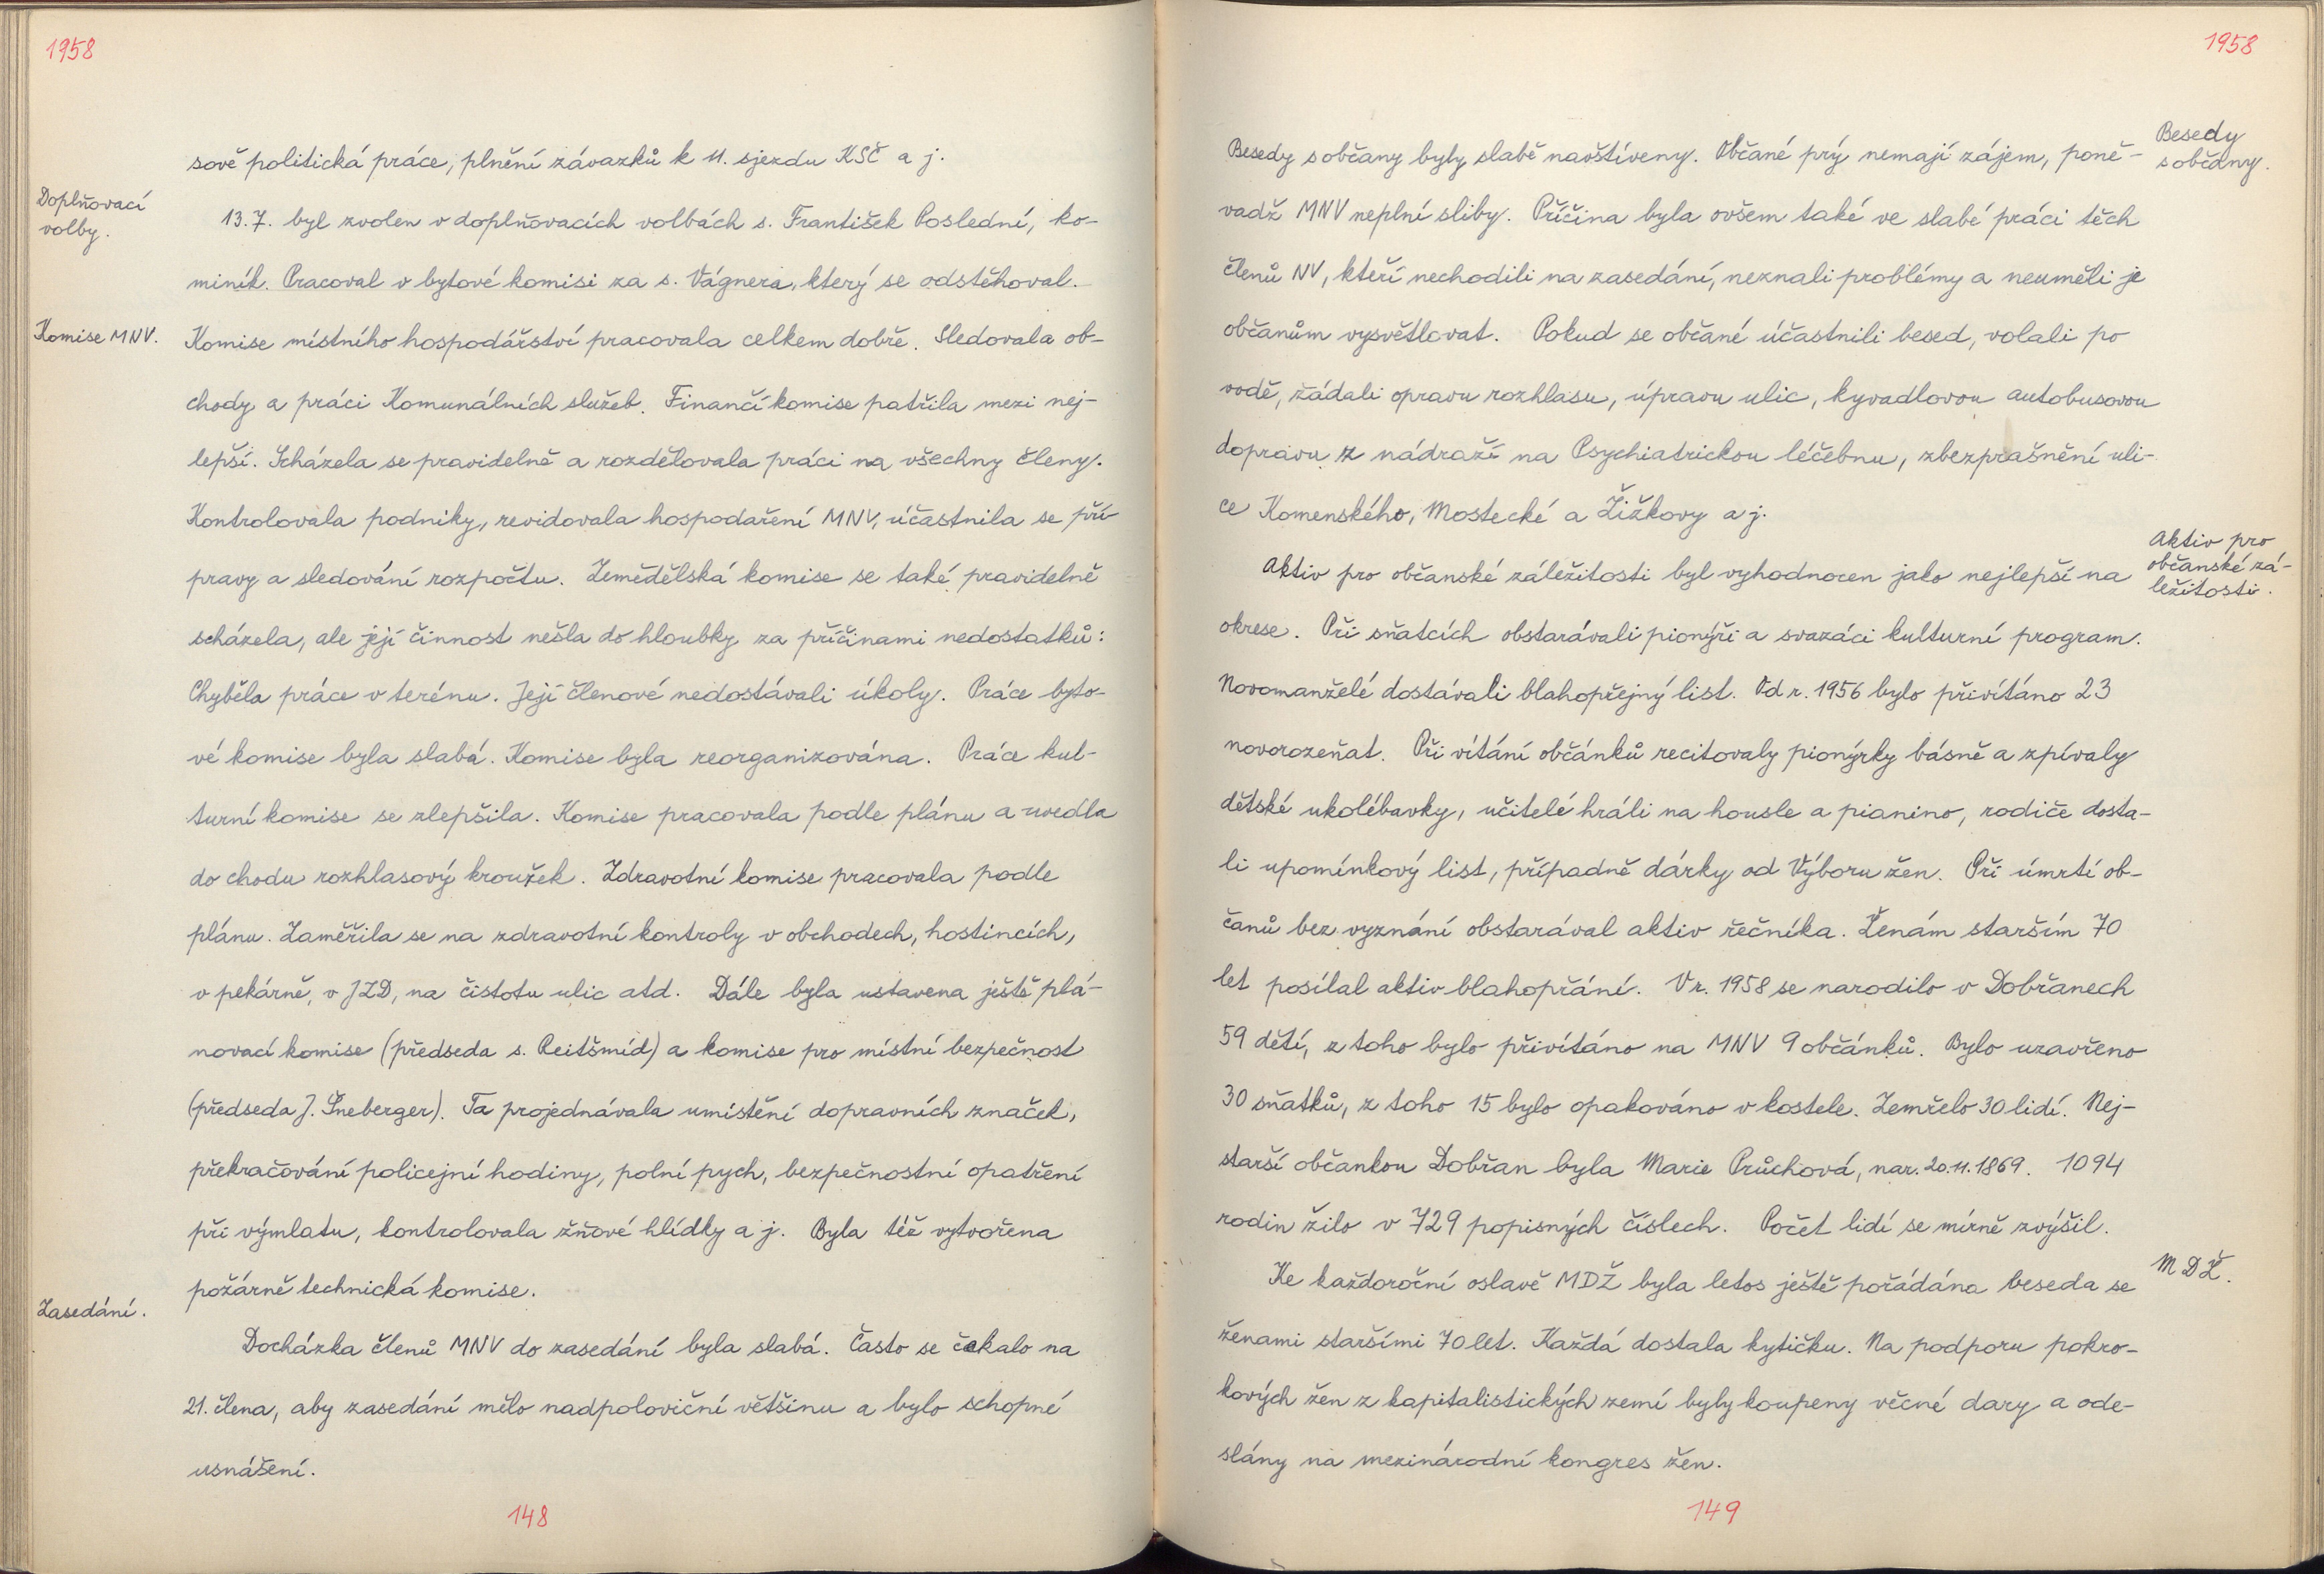 1958
sově politická práce, plnění závazků k 11. sjezdu KSČ a j.
Doplňovací
volby.
13.7. byl zvolen v doplňovacích volbách s. František Poslední, ko-
miník. Pracoval v bytové komisi za s. Vágnera, který se odstěhoval.
Komise MNV.
Komise místního hospodářství pracovala celkem dobře. Sledovala ob-
chody a práci Komunálních služeb. Finančí komise patřila mezi nej-
lepší. Scházela se pravidelně a rozdělovala práci na všechny členy.
Kontrolovala podniky, revidovala hospodaření MNV, účastnila se pří-
pravy a sledování rozpočtu. Zemědělská komise se také pravidelně
scházela, ale její činnost nešla do hloubky za příčinami nedostatků:
Chyběla práce v terénu. Její členové nedostávali úkoly. Práce byto-
vé komise byla slabá. Komise byla reorganizována. Práce kul-
turní komise se zlepšila. Komise pracovala podle plánu a uvedla
do chodu rozhlasový kroužek. Zdravotní komise pracovala podle
plánu. Zaměřila se na zdravotní kontroly v obchodech, hostincích,
v pekárně, v JZD, na čistotu ulic atd. Dále byla ustavena ještě plá-
novací komise (předseda s. Reitšmíd) a komise pro místní bezpečnost
(předseda J. Šneberger). Ta projednávala umístění dopravních značek,
překračování policejní hodiny, polní pych, bezpečnostní opatření
při výmlatu, kontrolovala žňové hlídky a j. Byla též vytvořena
požárně technická komise.
Zasedání.
Docházka členů MNV do zasedání byla slabá. Často se čekalo na
21. člena, aby zasedání mělo nadpoloviční většinu a bylo schopné
usnášení.
148
1958
Besedy
s občany.
Besedy s občany byly slabě navštíveny. Občané prý nemají zájem, poně-
vadž MNV neplní sliby. Příčina byla ovšem také ve slabé práci těch
členů NV, kteří nechodili na zasedání, neznali problémy a neuměli je
občanům vysvětlovat. Pokud se občané účastnili besed, volali po
vodě, žádali opravu rozhlasu, úpravu ulic, kyvadlovou autobusovou
dopravu z nádraží na Psychiatrickou léčebnu, zbezprašnění uli-
ce Komenského, Mostecké a Žižkovy a j.
Aktiv pro
občanské zá-
ležitosti.
Aktiv pro občanské záležitosti byl vyhodnocen jako nejlepší na
okrese. Při sňatcích obstarávali pionýři a svazáci kulturní program.
Novomanželé dostávali blahopřejný list. Od r. 1956 bylo přivítáno 23
novorozeňat. Při vítání občánků recitovaly pionýrky básně a zpívaly
dětské ukolébavky, učitelé hráli na housle a pianino, rodiče dosta-
li upomínkový list, případně dárky od Výboru žen. Při úmrtí ob-
čanů bez vyznání obstarával aktiv řečníka. Ženám starším 70
let posílal aktiv blahopřání. V r. 1958 se narodilo v Dobřanech
59 dětí, z toho bylo přivítáno na MNV 9 občánků. Bylo uzavřeno
30 sňatků, z toho 15 bylo opakováno v kostele. Zemřelo 30 lidí. Nej-
starší občankou Dobřan byla Marie Průchová, nar. 20.11.1869. 1094
rodin žilo v 729 popisných číslech. Počet lidí se mírně zvýšil.
MDŽ.
Ke každoroční oslavě MDŽ byla letos ještě pořádána beseda se
ženami staršími 70 let. Každá dostala kytičku. Na podporu pokro-
kových žen z kapitalistických zemí byly koupeny věcné dary a ode-
slány na mezinárodní kongres žen.
149